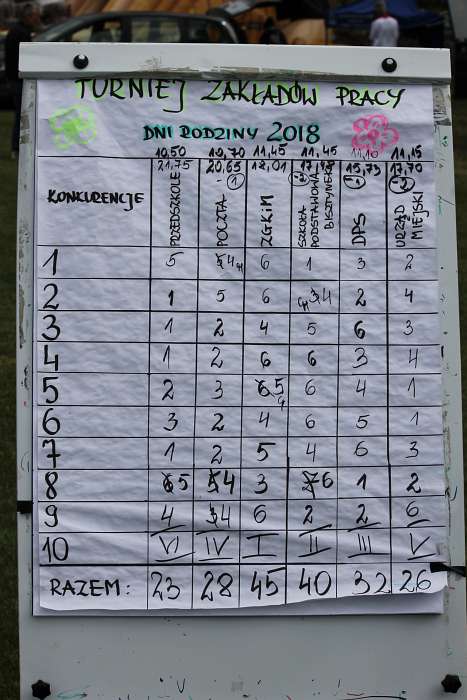 TURNIEJ ZAKŁADÓW PRACY
DNI RODZINY 2018
10,50 10,70 11,45 11,45 11,10 11,15
21,75 20,65 12,01 17,48 15,73 17,70
1 -2 -1 -2
KONKURENCJE PRZEDSZKOLE POCZTA ZGKIM SZKOŁA PODSTAWOWA BISZTYNEK DPS URZĄD MIEJSKI
1 5 4 6 1 3 2
2 1 5 6 4 2 4
3 1 2 4 5 6 3
4 1 2 6 6 3 4
5 2 3 5 6 4 1
6 3 2 4 6 5 1
7 1 2 5 4 6 3
8 5 4 3 6 1 2
9 4 4 6 2 2 6
10 VI IV I II III V
RAZEM: 23 28 45 40 32 26